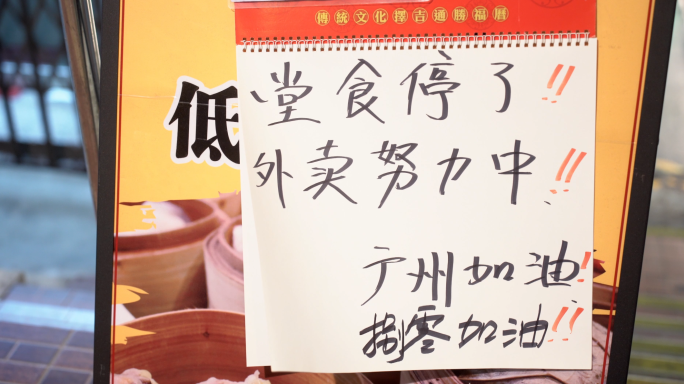 傳統文化擇吉通勝福曆
堂食停了!!
低
外卖努力中!!
广州加油!
捌零加油!!